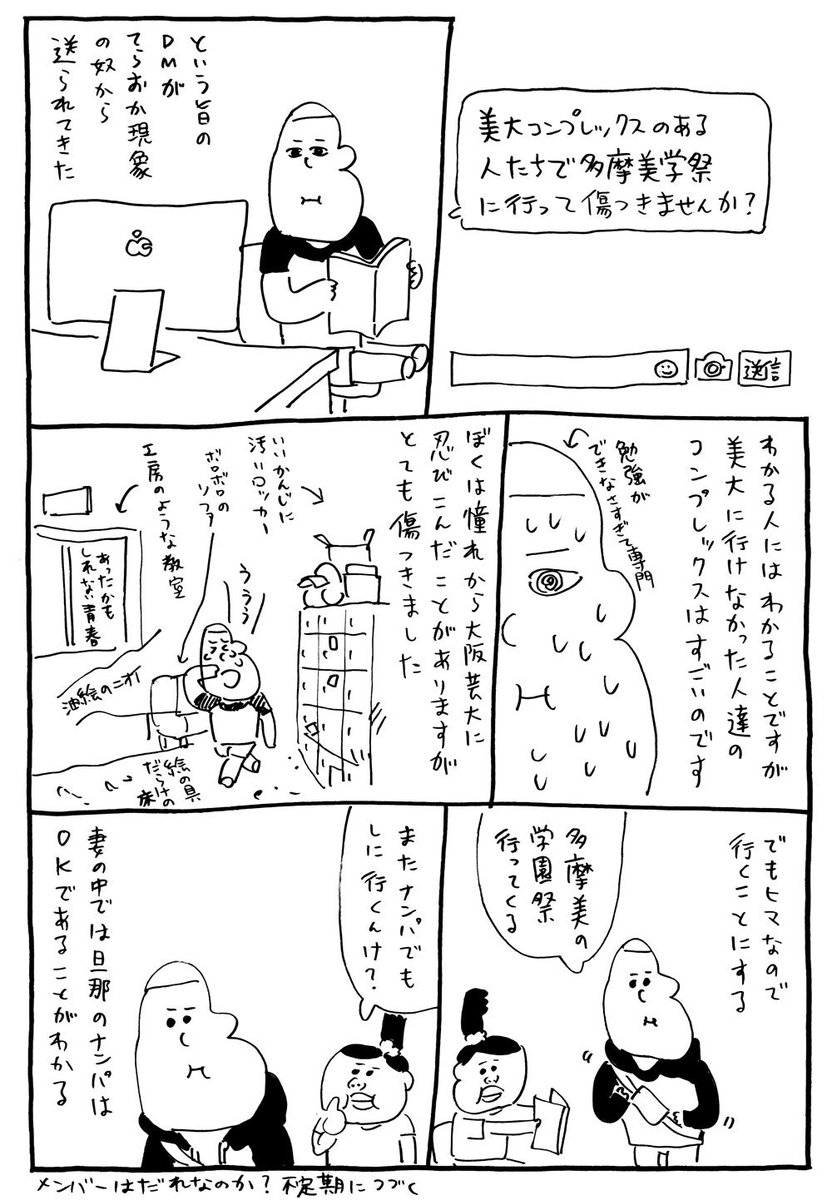 美大コンプレックスのある
人たちで多摩美学祭
に行って傷つきませんか?
送信
という旨の
DMが
てらおか現象
の奴から
送られてきた
わかる人にはわかることですが
美大に行けなかった人達の
コンプレックスはすごいのです
勉強が
できなさすぎて専門
ぼくは憧れから大阪芸大に
忍びこんだことがありますが
とても傷つきました
いいかんじに
汚いロッカー
ボロボロの
ソファ
工房のような教室
ううう
あったかも
しれない青春
油絵のニオイ
絵の具
だらけの
床
でもヒマなので
行くことにする
多摩美の
学園祭
行ってくる
またナンパでも
しに行くんけ?
妻の中では旦那のナンパは
OKであることがわかる
メンバーはだれなのか?不定期につづく